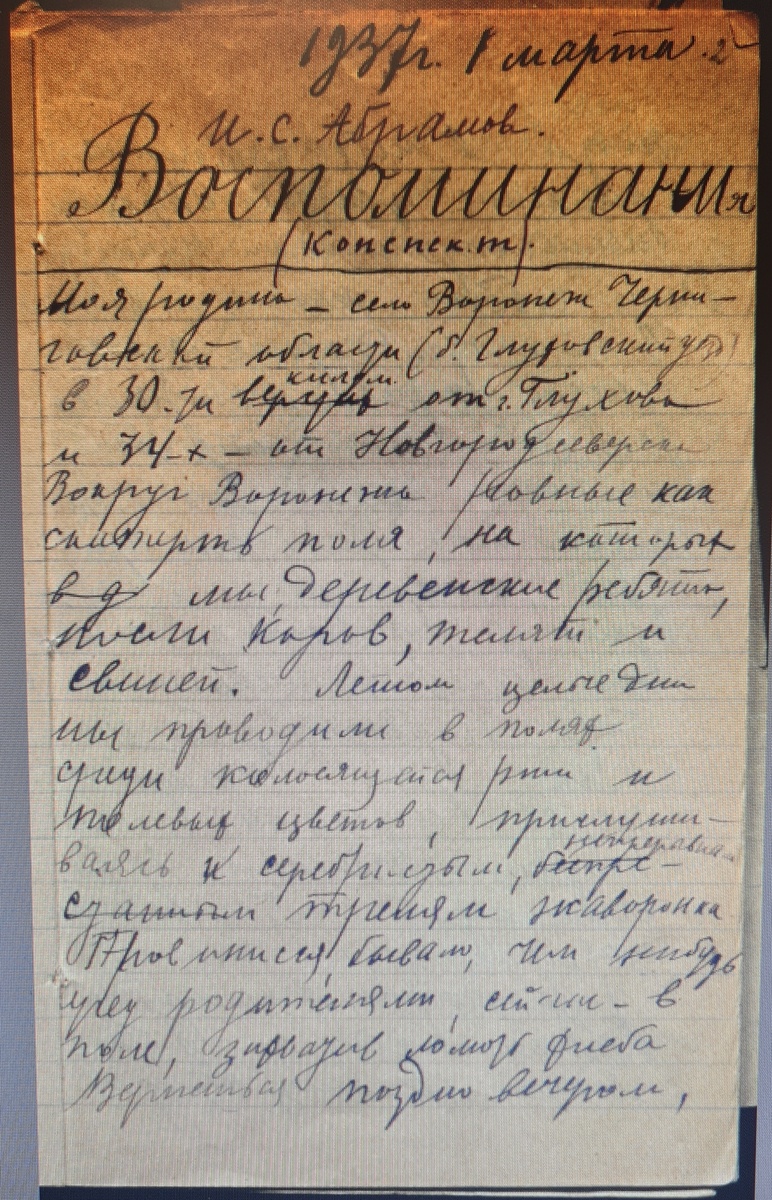 1937г. 8 марта. 2
И. С. Абрамов.
Воспоминания
(Конспект).
Моя родина – село Воронеж Черни-
говской области (б. Глуховский уезд)
в 30-ти верстах килом. от г. Глухова
и 34-х – от Новгородсеверска
Вокруг Воронежа ровные как
скатерть поля, на которых
в д мы, деревенские ребята,
пасли коров, телят и
свиней. Летом целые дни
мы проводили в полях
среди колосящейся ржи и
полевых цветов, прислуши-
ваясь к серебристым, беспре- непрерывным
станным трелям жаворонка
Провинишся, бывало, чем нибудь
пред родителями, сейчас – в
поле, захватив ломоть хлеба
Вернешься поздно вечером,